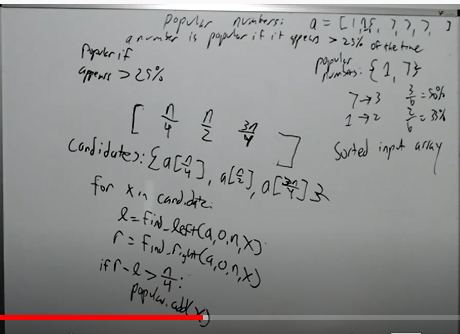 popular numbers: a = [1, 1, 5, 7, 7, 7]
a number is popular if it appears > 25% of the time
Popular if
appears > 25%
popular
numbers: {1, 7}
7 → 3 3/6 = 50%
1 → 2 2/6 = 33%
Sorted input array
[ n/4 n/2 3n/4 ]
candidates: {a[n/4], a[n/2], a[3n/4]}
for x in candidate:
l = find_left(a, 0, n, x)
r = find_right(a, 0, n, x)
if r - l > n/4:
popular.add(x)